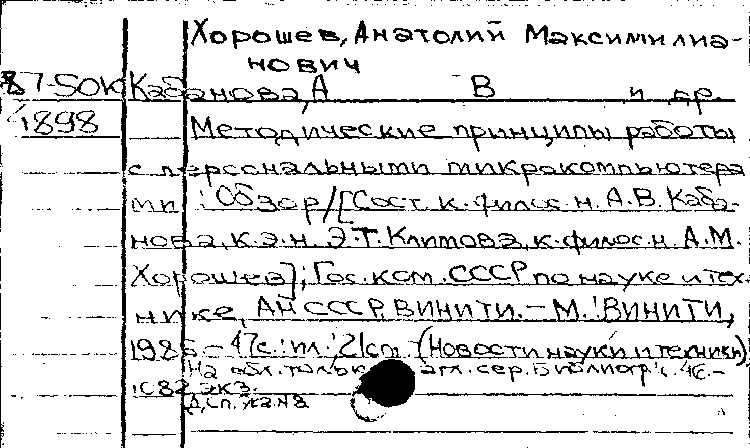 Хорошев, Анатолий Максимилиа-
нович
Кабанова, А В и др.
4898
Методические принципы работы
с персональными микрокомпьютера
ми : Обзор/[Сост. к.филос.н. А.В. Каба-
нова, к.э.н. Э.Т. Климова, к.филос.н. А.М.
Хорошев]; Гос. ком. СССР по науке и тех-
нике, АН СССР, ВИНИТИ. - М. : ВИНИТИ,
- 47с. : ил. ; 21см. - (Новости науки и техники)
На обл. только загл. сер. Библиогр.: с. 46. -
экз.